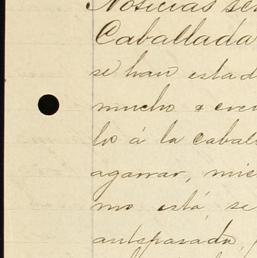 Noticias
Caballada
se han estad
mucho a
lo á la cabal
agarrar, mie
mo está, se
antepasado,